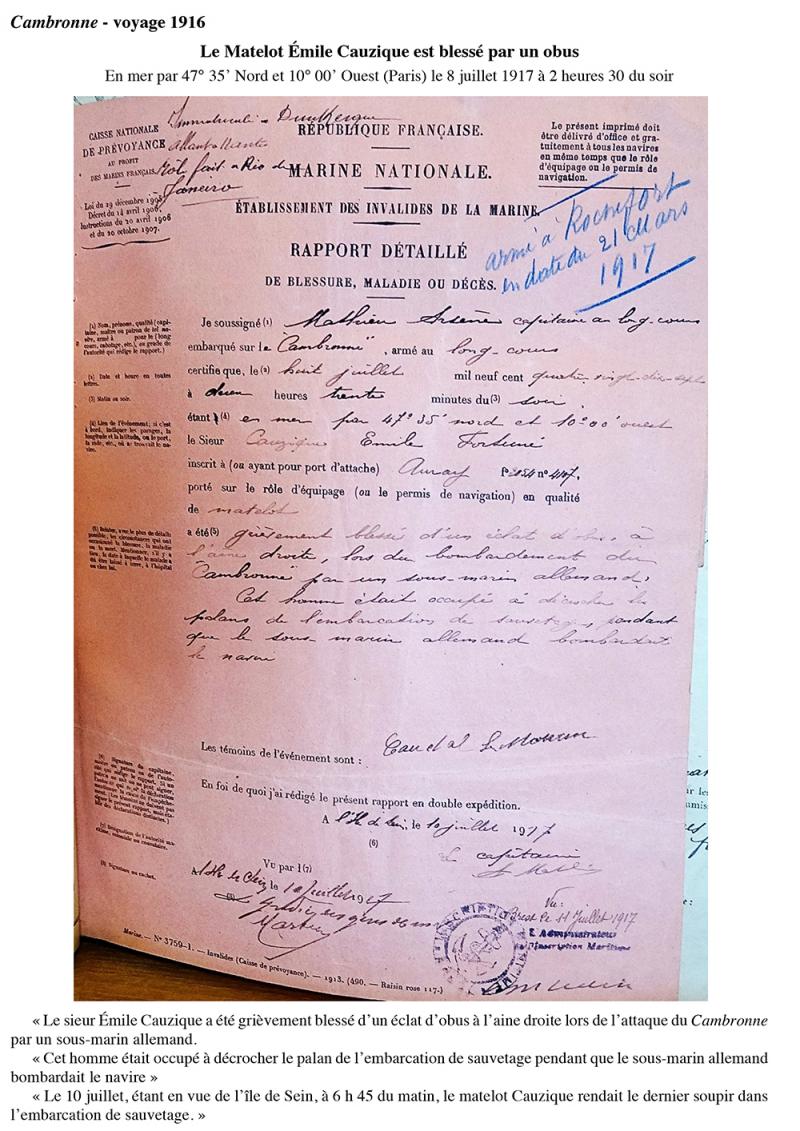 Cambronne - voyage 1916
Le Matelot Émile Cauzique est blessé par un obus
En mer par 47° 35’ Nord et 10° 00’ Ouest (Paris) le 8 juillet 1917 à 2 heures 30 du soir
Immatriculé à Dunkerque
allant à Nantes
Rôle fait à Rio de
Janeiro
CAISSE NATIONALE
DE PRÉVOYANCE
AU PROFIT
DES MARINS FRANÇAIS
Loi du 29 décembre 1905
Décret du 14 avril 1906,
Instructions du 20 avril 1906
et du 20 octobre 1907.
RÉPUBLIQUE FRANÇAISE.
MARINE NATIONALE.
ÉTABLISSEMENT DES INVALIDES DE LA MARINE.
Le présent imprimé doit
être délivré d'office et gra-
tuitement à tous les navires
en même temps que le rôle
d'équipage ou le permis de
navigation.
RAPPORT DÉTAILLÉ
DE BLESSURE, MALADIE OU DÉCÈS.
armé à Rochefort
en date du 21 Mars
1917
(1) Nom, prénoms, qualité (capi-
taine, maître ou patron de tel na-
vire, armé à pour le (long
cours, cabotage, etc.), ou grade de
l'autorité qui rédige le rapport.)
Je soussigné (1) Mathieu Arsène capitaine au long-cours
embarqué sur le "Cambronne", armé au long-cours
(2) Date et heure en toutes
lettres.
certifie que, le (2) huit juillet mil neuf cent quatre-vingt-dix-sept
(3) Matin ou soir.
à deux heures trente minutes du (3) soir
(4) Lieu de l'événement; si c'est
à bord, indiquer les parages, la
longitude et la latitude, ou le port,
la rade, etc., où se trouvait le na-
vire.
étant (4) en mer par 47° 35' nord et 10° 00' ouest
le Sieur Cauzique Emile Fortuné
inscrit à (ou ayant pour port d'attache) Auray
porté sur le rôle d'équipage (ou le permis de navigation) en qualité
de matelot
a été (5) grièvement blessé d'un éclat d'obus, à
l'aine droite, lors du bombardement du
"Cambronne" par un sous-marin allemand.
Cet homme était occupé à décrocher les
palans de l'embarcation de sauvetage, pendant
que le sous-marin allemand bombardait
le navire
Les témoins de l'événement sont : Caudal Le Mourin
En foi de quoi j'ai rédigé le présent rapport en double expédition.
A l'Ile de Sein, le 10 juillet 1917
(6)
Le capitaine
Vu par (7)
A l'Ile de Sein le 10 juillet 1917
(8) Signature ou cachet.
Vu:
Brest le 11 Juillet 1917
L'Administrateur
l'Inscription Maritime
Marine. — N° 3759-1. — Invalides (Caisse de prévoyance). — 1913. (490. — Raisin rose 117.)
« Le sieur Émile Cauzique a été grièvement blessé d’un éclat d’obus à l’aine droite lors de l’attaque du Cambronne
par un sous-marin allemand.
« Cet homme était occupé à décrocher le palan de l’embarcation de sauvetage pendant que le sous-marin allemand
bombardait le navire »
« Le 10 juillet, étant en vue de l’île de Sein, à 6 h 45 du matin, le matelot Cauzique rendait le dernier soupir dans
l’embarcation de sauvetage. »